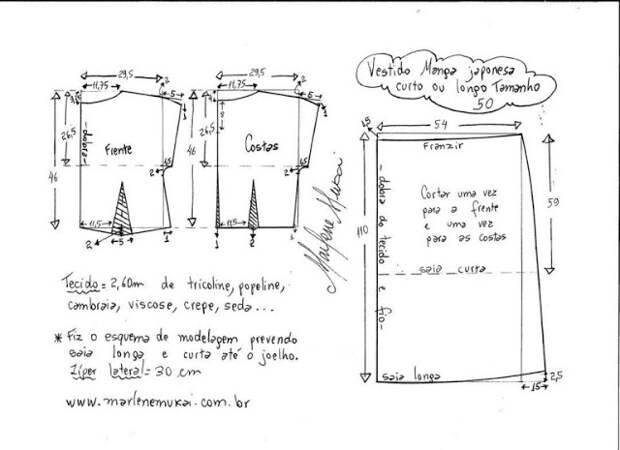 29,5
2
11,75
5
3
1
46
26,5
dobra
Frente
1,5
2
11,5
2
5
1
29,5
2
11,75
5
1
46
26,5
8
Costas
1,5
2
11,5
3
1
Marlene Mukai
Vestido Manga japonesa
curto ou longo Tamanho
50
1,5
54
Franzir
59
110
dobra do tecido e fio
Cortar uma vez
para a frente
e uma vez
para as costas
saia curta
saia longa
15
2,5
Tecido = 2,60m de tricoline, popeline,
cambraia, viscose, crepe, seda...
* Fiz o esquema de modelagem prevendo
saia longa e curta até o joelho.
Zíper lateral = 30 cm
www.marlenemukai.com.br